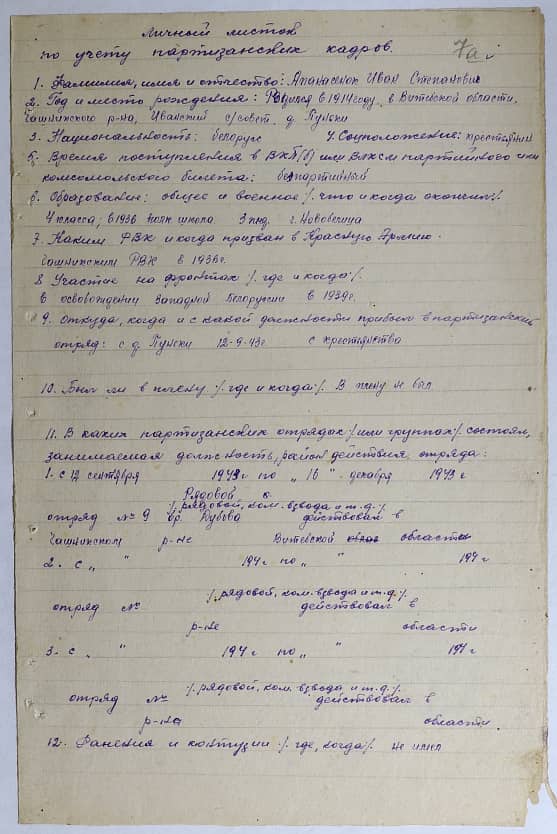 Личный листок
по учету партизанских кадров.
7а
1. Фамилия, имя и отчество: Апанасенок Иван Степанович
2. Год и место рождения: Родился в 1914 году, в Витебской области,
Чашникского р-на, Иванский с/совет, д. Пунски
3. Национальность: белорус 4. Соцположение: крестьянин
5. Время поступления в ВКП(б) или ВЛКСМ партийного или
комсомольского билета: беспартийный
6. Образование: общее и военное /. что и когда окончил /.
4 класса; в 1936 полк. школа
7. Каким РВК и когда призван в Красную Армию.
Чашникским РВК в 1936 г.
8. Участие на фронтах /. где и когда /.
в освобождении Западной Белоруссии в 1939 г.
9. Откуда, когда и с какой должности прибыл в партизанский
отряд: с д. Пунски 12-9-43 г. с крестьянства
10. Был ли в плену /. где и когда /. В плену не был
11. В каких партизанских отрядах /. или группах /. состоял,
занимаемая должность, район действия отряда:
1. с 12 сентября 1943 г по „ 16 " декабря 1943 г
Рядовой
/. рядовой, ком. взвода и т.д. /.
отряд № 9 бр. Дубова действовал в
Чашникском р-не Витебской области
2. с „ " 194 г по „ " 194 г
/. рядовой, ком. взвода и т.д. /.
отряд № действовал в
р-не области
3. с „ " 194 г по „ " 194 г
/. рядовой, ком. взвода и т.д. /.
отряд № действовал в
р-не области
12. Ранения и контузии /. где, когда /. не имел